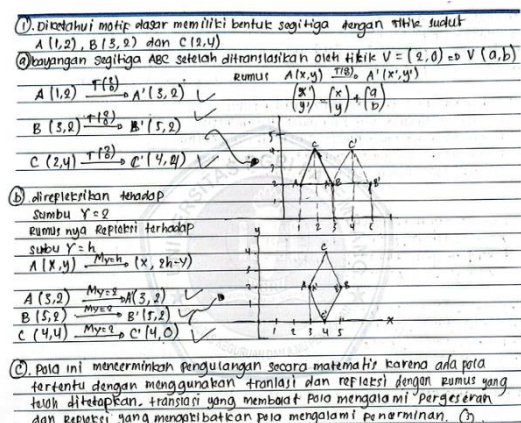 ①. Diketahui motif dasar memiliki bentuk segitiga dengan titik sudut
A (1,2), B (3,2) dan C (2,4)
ⓐ bayangan segitiga ABC setelah ditranslasikan oleh titik V = (2,0) => V (a,b)
Rumus A(x,y) T(a b) A'(x',y')
(x' y') = (x y) + (a b)
A (1,2) T(2 0) A' (3,2)
B (3,2) T(2 0) B' (5,2)
C (2,4) T(2 0) C' (4,4)
5
4
3
2
1
A C B C' B'
1 2 3 4 5
ⓑ direpleksikan tehadap
Sumbu Y = 2
Rumus nya Repleksi terhadap
subu Y = h
A (X,Y) My=h (x, 2h-y)
A (3,2) My=2 A(3,2)
B (5,2) My=2 B' (5,2)
C (4,4) My=2 C' (4,0)
y
4
3
2
1
C
A B
C'
1 2 3 4 5 x
ⓒ. Pola ini mencerminkan pengulangan secara matematis karena ada pola
tertentu dengan menggunakan tranlasi dan refleksi dengan rumus yang
telah ditetapkan. translasi yang membuat Pola mengalami pergeseran
dan Repleksi yang mengakibatkan Pola mengalami penerminan. (3)